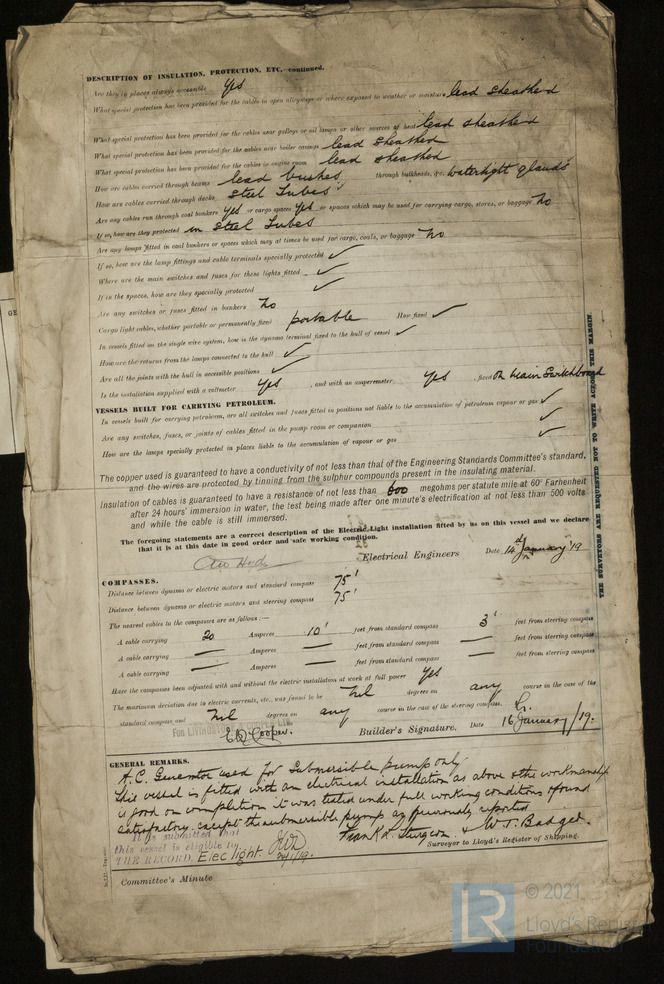 DESCRIPTION OF INSULATION, PROTECTION, ETC.—continued.
Are they in places always accessible Yes
What special protection has been provided for the cables in open alleyways or where exposed to weather or moisture lead sheathed
What special protection has been provided for the cables near galleys or oil lamps or other sources of heat lead sheathed
What special protection has been provided for the cables near boiler casings lead sheathed
What special protection has been provided for the cables in engine room lead sheathed
How are cables carried through beams lead bushes through bulkheads, &c. watertight glands
How are cables carried through decks Steel Tubes
Are any cables run through coal bunkers Yes or cargo spaces Yes or spaces which may be used for carrying cargo, stores, or baggage No
If so, how are they protected in Steel Tubes
Are any lamps fitted in coal bunkers or spaces which may at times be used for cargo, coals, or baggage No
If so, how are the lamp fittings and cable terminals specially protected ✓
Where are the main switches and fuses for these lights fitted ✓
If in the spaces, how are they specially protected ✓
Are any switches or fuses fitted in bunkers No
Cargo light cables, whether portable or permanently fixed portable How fixed ✓
In vessels fitted on the single wire system, how is the dynamo terminal fixed to the hull of vessel ✓
How are the returns from the lamps connected to the hull ✓
Are all the joints with the hull in accessible positions ✓
Is the installation supplied with a voltmeter Yes, and with an amperemeter Yes, fixed On Main Switchboard
VESSELS BUILT FOR CARRYING PETROLEUM.
In vessels built for carrying petroleum, are all switches and fuses fitted in positions not liable to the accumulation of petroleum vapour or gas ✓
Are any switches, fuses, or joints of cables fitted in the pump room or companion ✓
How are the lamps specially protected in places liable to the accumulation of vapour or gas ✓
The copper used is guaranteed to have a conductivity of not less than that of the Engineering Standards Committee's standard,
and the wires are protected by tinning from the sulphur compounds present in the insulating material.
Insulation of cables is guaranteed to have a resistance of not less than 600 megohms per statute mile at 60° Farhenheit
after 24 hours' immersion in water, the test being made after one minute's electrification at not less than 500 volts
and while the cable is still immersed.
The foregoing statements are a correct description of the Electric Light installation fitted by us on this vessel and we declare
that it is at this date in good order and safe working condition.
Electrical Engineers Date 14th January '19
COMPASSES.
Distance between dynamo or electric motors and standard compass 75'
Distance between dynamo or electric motors and steering compass 75'
The nearest cables to the compasses are as follows:—
A cable carrying 20 Amperes 10' feet from standard compass 3' feet from steering compass
A cable carrying — Amperes — feet from standard compass — feet from steering compass
A cable carrying — Amperes — feet from standard compass — feet from steering compass
Have the compasses been adjusted with and without the electric installation at work at full power Yes
The maximum deviation due to electric currents, etc., was found to be Nil degrees on any course in the case of the
standard compass and Nil degrees on any course in the case of the steering compass.
FOR LIVINGSTON & COOPER LTD.
Cooper. Builder's Signature. Date 16 January/19.
GENERAL REMARKS.
A.C. Generator used for Submersible pump only
This vessel is fitted with an electrical installation as above & the workmanship
is good on completion it was tested under full working conditions & found
satisfactory except the submersible pump as previously reported
It is submitted that
this vessel is eligible for
THE RECORD. Elec light.
Frank L. Sturgeon & W. T. Badger.
Surveyor to Lloyd's Register of Shipping.
Committee's Minute
THE SURVEYORS ARE REQUESTED NOT TO WRITE ACROSS THIS MARGIN
LR © 2021
Lloyd's Register
Foundation